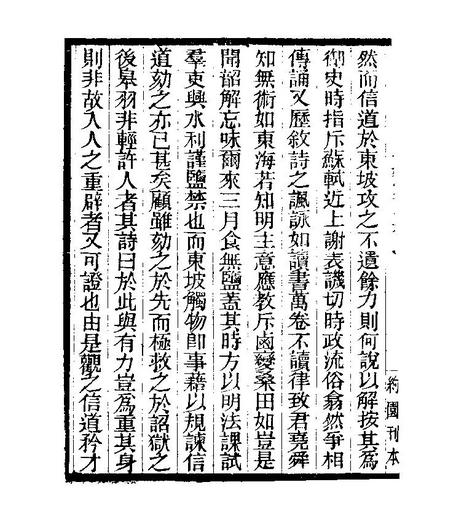 然而信道於東坡攻之不遺餘力則何說以解按其爲
御史時指斥蘇軾近上謝表譏切時政流俗翕然爭相
傳誦又歷敘詩之諷詠如讀書萬卷不讀律致君堯舜
知無術如東海若知明主意應教斥鹵變桑田如豈是
聞韶解忘味爾來三月食無鹽蓋其時方以明法課試
羣吏興水利謹鹽禁也而東坡觸物卽事藉以規諫信
道劾之亦已甚矣顧雖劾之於先而極救之於詔獄之
後皋羽非輕許人者其詩曰於此與有力豈爲重其身
則非故入人之重辟者又可證也由是觀之信道矜才
約園刊本